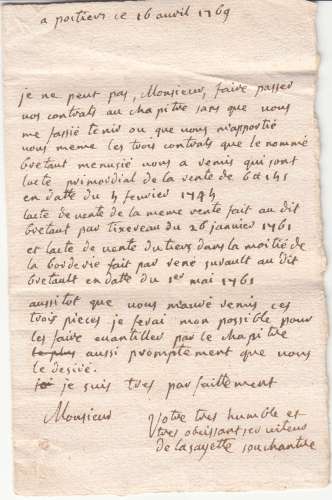 a poitiers ce 16 avril 1769
je ne peut pas, Monsieur, faire passer
vos contrats au chapitre sans que vous
me fassié tenir ou que vous m'apportié
vous meme les trois contrats que le nommé
bretaut menusié vous a remis qui sont
lacte primordial de la vente de
en datte du 4 fevrier 1744
lacte de vente de la meme vente fait au dit
bretaut par tixereau du 26 janvier 1761
et lacte de vente du tiers dans la moitié de
la borderie fait par rené suvault au dit
bretault en datte du 1er mai 1761
aussitot que vous m'auré remis ces
trois pieces je ferai mon possible pour
les faire par le chapitre
le plus aussi promptement que vous
le desiré.
je suis tres parfaittement
Monsieur
Votre tres humble et
tres obeissant serviteur
de lafayette souchantre